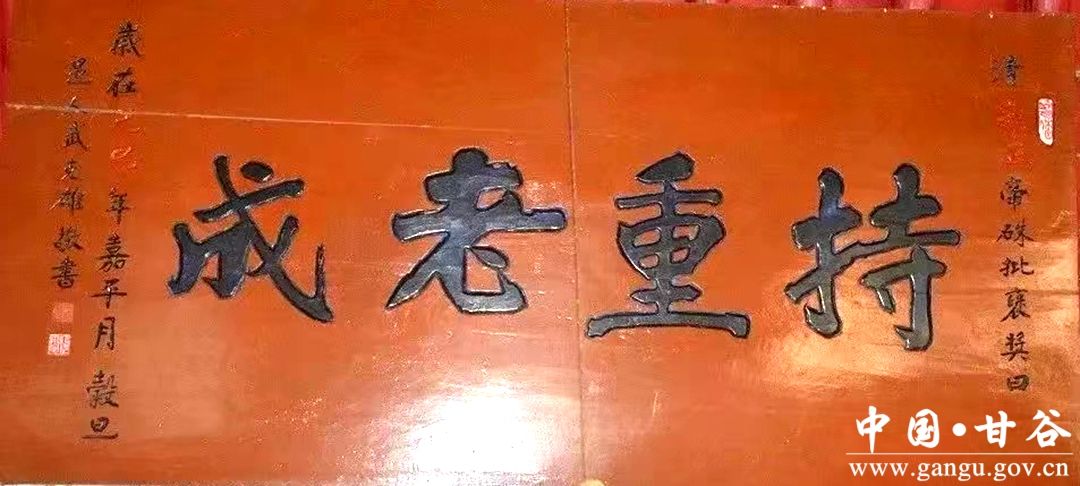 清雍正帝硃批褒奖曰
持重老成
歲在巳年嘉平月穀旦
邑人武克雄書
中国·甘谷
www.gangu.gov.cn